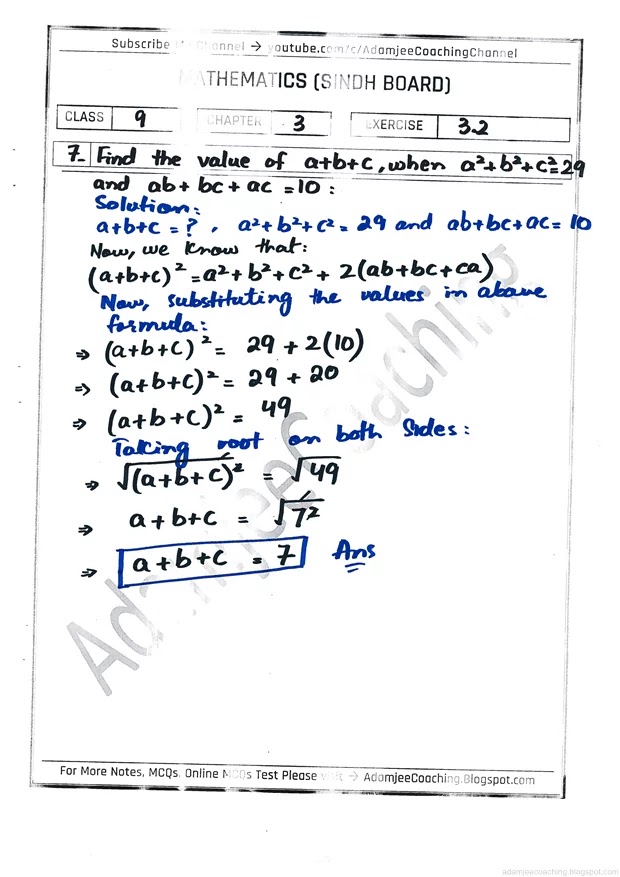 Subscribe My Channel → youtube.com/c/AdamjeeCoachingChannel
MATHEMATICS (SINDH BOARD)
CLASS 9 CHAPTER 3 EXERCISE 3.2
7- Find the value of a+b+c, when a²+b²+c²=29
and ab+bc+ac=10:
Solution:
a+b+c = ?, a²+b²+c² = 29 and ab+bc+ac = 10
Now, we know that:
(a+b+c)² = a²+b²+c² + 2(ab+bc+ca)
Now, substituting the values in above
formula:
⇒ (a+b+c)² = 29 + 2(10)
⇒ (a+b+c)² = 29 + 20
⇒ (a+b+c)² = 49
Taking root on both sides:
⇒ √(a+b+c)² = √49
⇒ a+b+c = √7²
⇒ a+b+c = 7 Ans
AdamjeeCoaching
For More Notes, MCQs, Online MCQs Test Please visit → AdamjeeCoaching.Blogspot.com
adamjeecoaching.blogspot.com